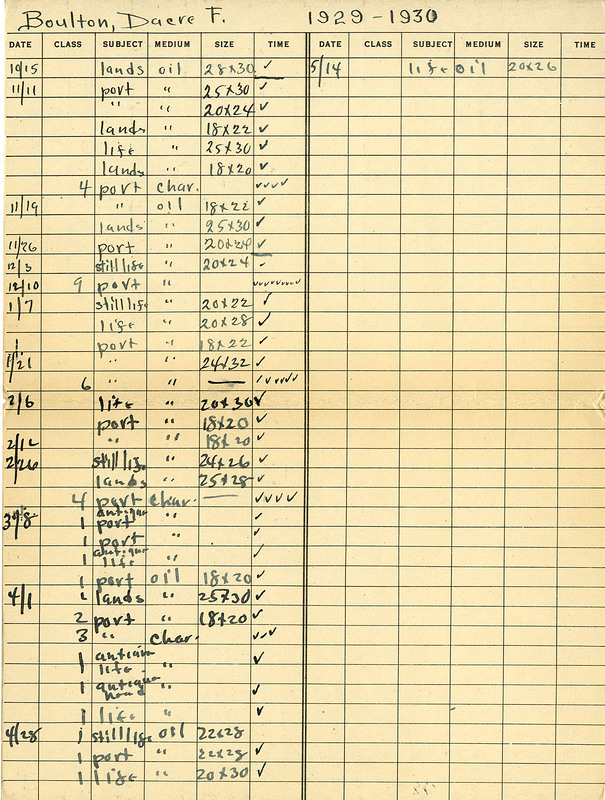 Boulton, Dacre F. 1929-1930
DATE CLASS SUBJECT MEDIUM SIZE TIME DATE CLASS SUBJECT MEDIUM SIZE TIME
10/15 lands oil 28x30 ✓ 5/14 life oil 20x26
11/11 port " 25x30 ✓
" " 20x24 ✓
lands " 18x22 ✓
life " 25x30 ✓
lands " 18x20 ✓
4 port char. ✓✓✓✓
11/19 " oil 18x22 ✓
lands " 25x30 ✓
11/26 port " 20x24 ✓
12/3 still life " 20x24 ✓
12/10 9 port " ✓✓✓✓✓✓✓✓✓
1/7 still life " 20x22 ✓
life " 20x28 ✓
port " 18x22 ✓
1/21 " " 24x32 ✓
6 " " — ✓✓✓✓✓✓
2/6 life " 20x30 ✓
port " 18x20 ✓
2/12 " " 18x20 ✓
2/26 still life " 24x26 ✓
lands " 25x28 ✓
4 port char. — ✓✓✓✓
1 antique port " ✓
1 port " ✓
1 antique life " ✓
1 port oil 18x20 ✓
4/1 1 lands " 25x30 ✓
2 port " 18x20 ✓
3 " char. ✓✓✓
1 antique life " ✓
1 antique head " ✓
1 life " ✓
4/28 1 still life oil 22x28
1 port " 22x28 ✓
1 life " 20x30 ✓